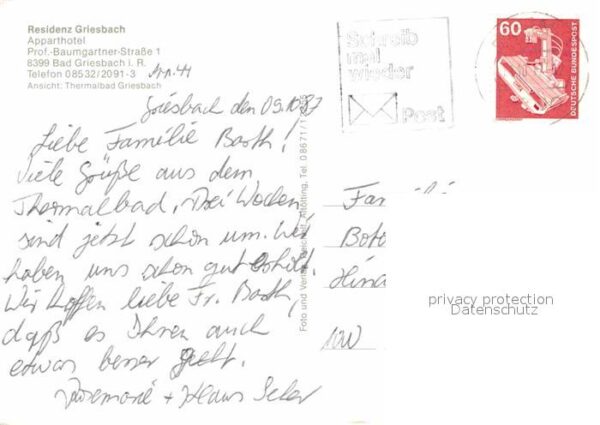 Residenz Griesbach
Apparthotel
Prof.-Baumgartner-Straße 1
8399 Bad Griesbach i. R.
Telefon 08532/2091-3
Ansicht: Thermalbad Griesbach
Schreib
mal
wieder
Post
60
DEUTSCHE BUNDESPOST
Griesbach den
Liebe Familie Barth!
Viele Grüße aus dem
Thermalbad. Drei Wochen
sind jetzt schon um. Wir
haben uns schon gut erholt.
Wir hoffen liebe Fr. Barth,
daß es Ihnen auch
etwas besser geht.
Rosemarie + Klaus
Foto und Verlag Altötting, Tel. 08671/
privacy protection
Datenschutz